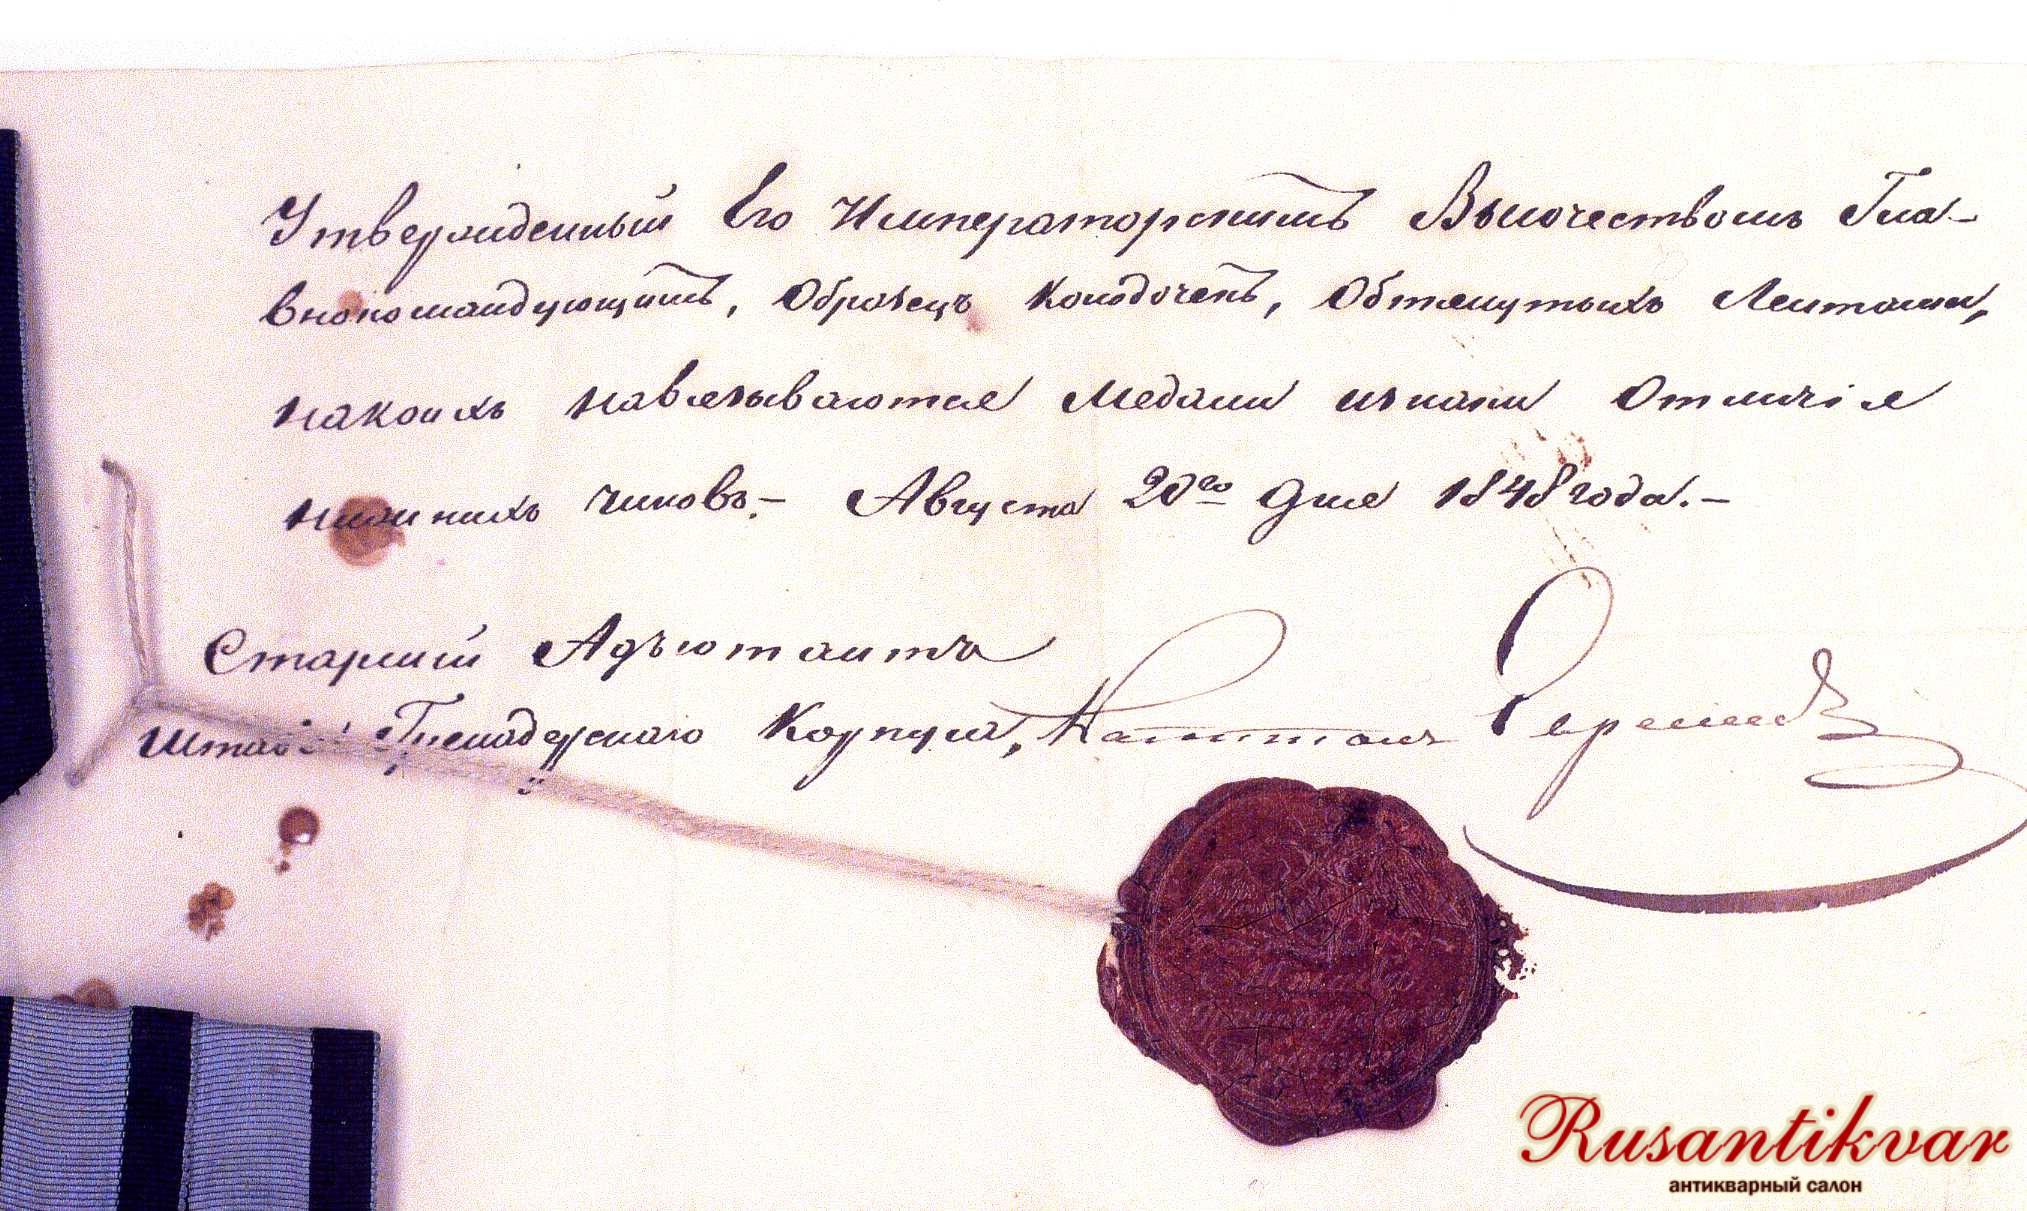 Утвержденный Его Императорскимъ Высочествомъ Гла-
внокомандующимъ, Образецъ колодочекъ, Обтянутыхъ Лентами,
накоихъ навязываются Медали изнаки Отличія
нижнихъ чиновъ.- Августа 20го дня 1848 года.-
Старшій Адъютантъ
Штаба Гренадерскаго Корпуса, Капитанъ
Rusantikvar
антикварный салон